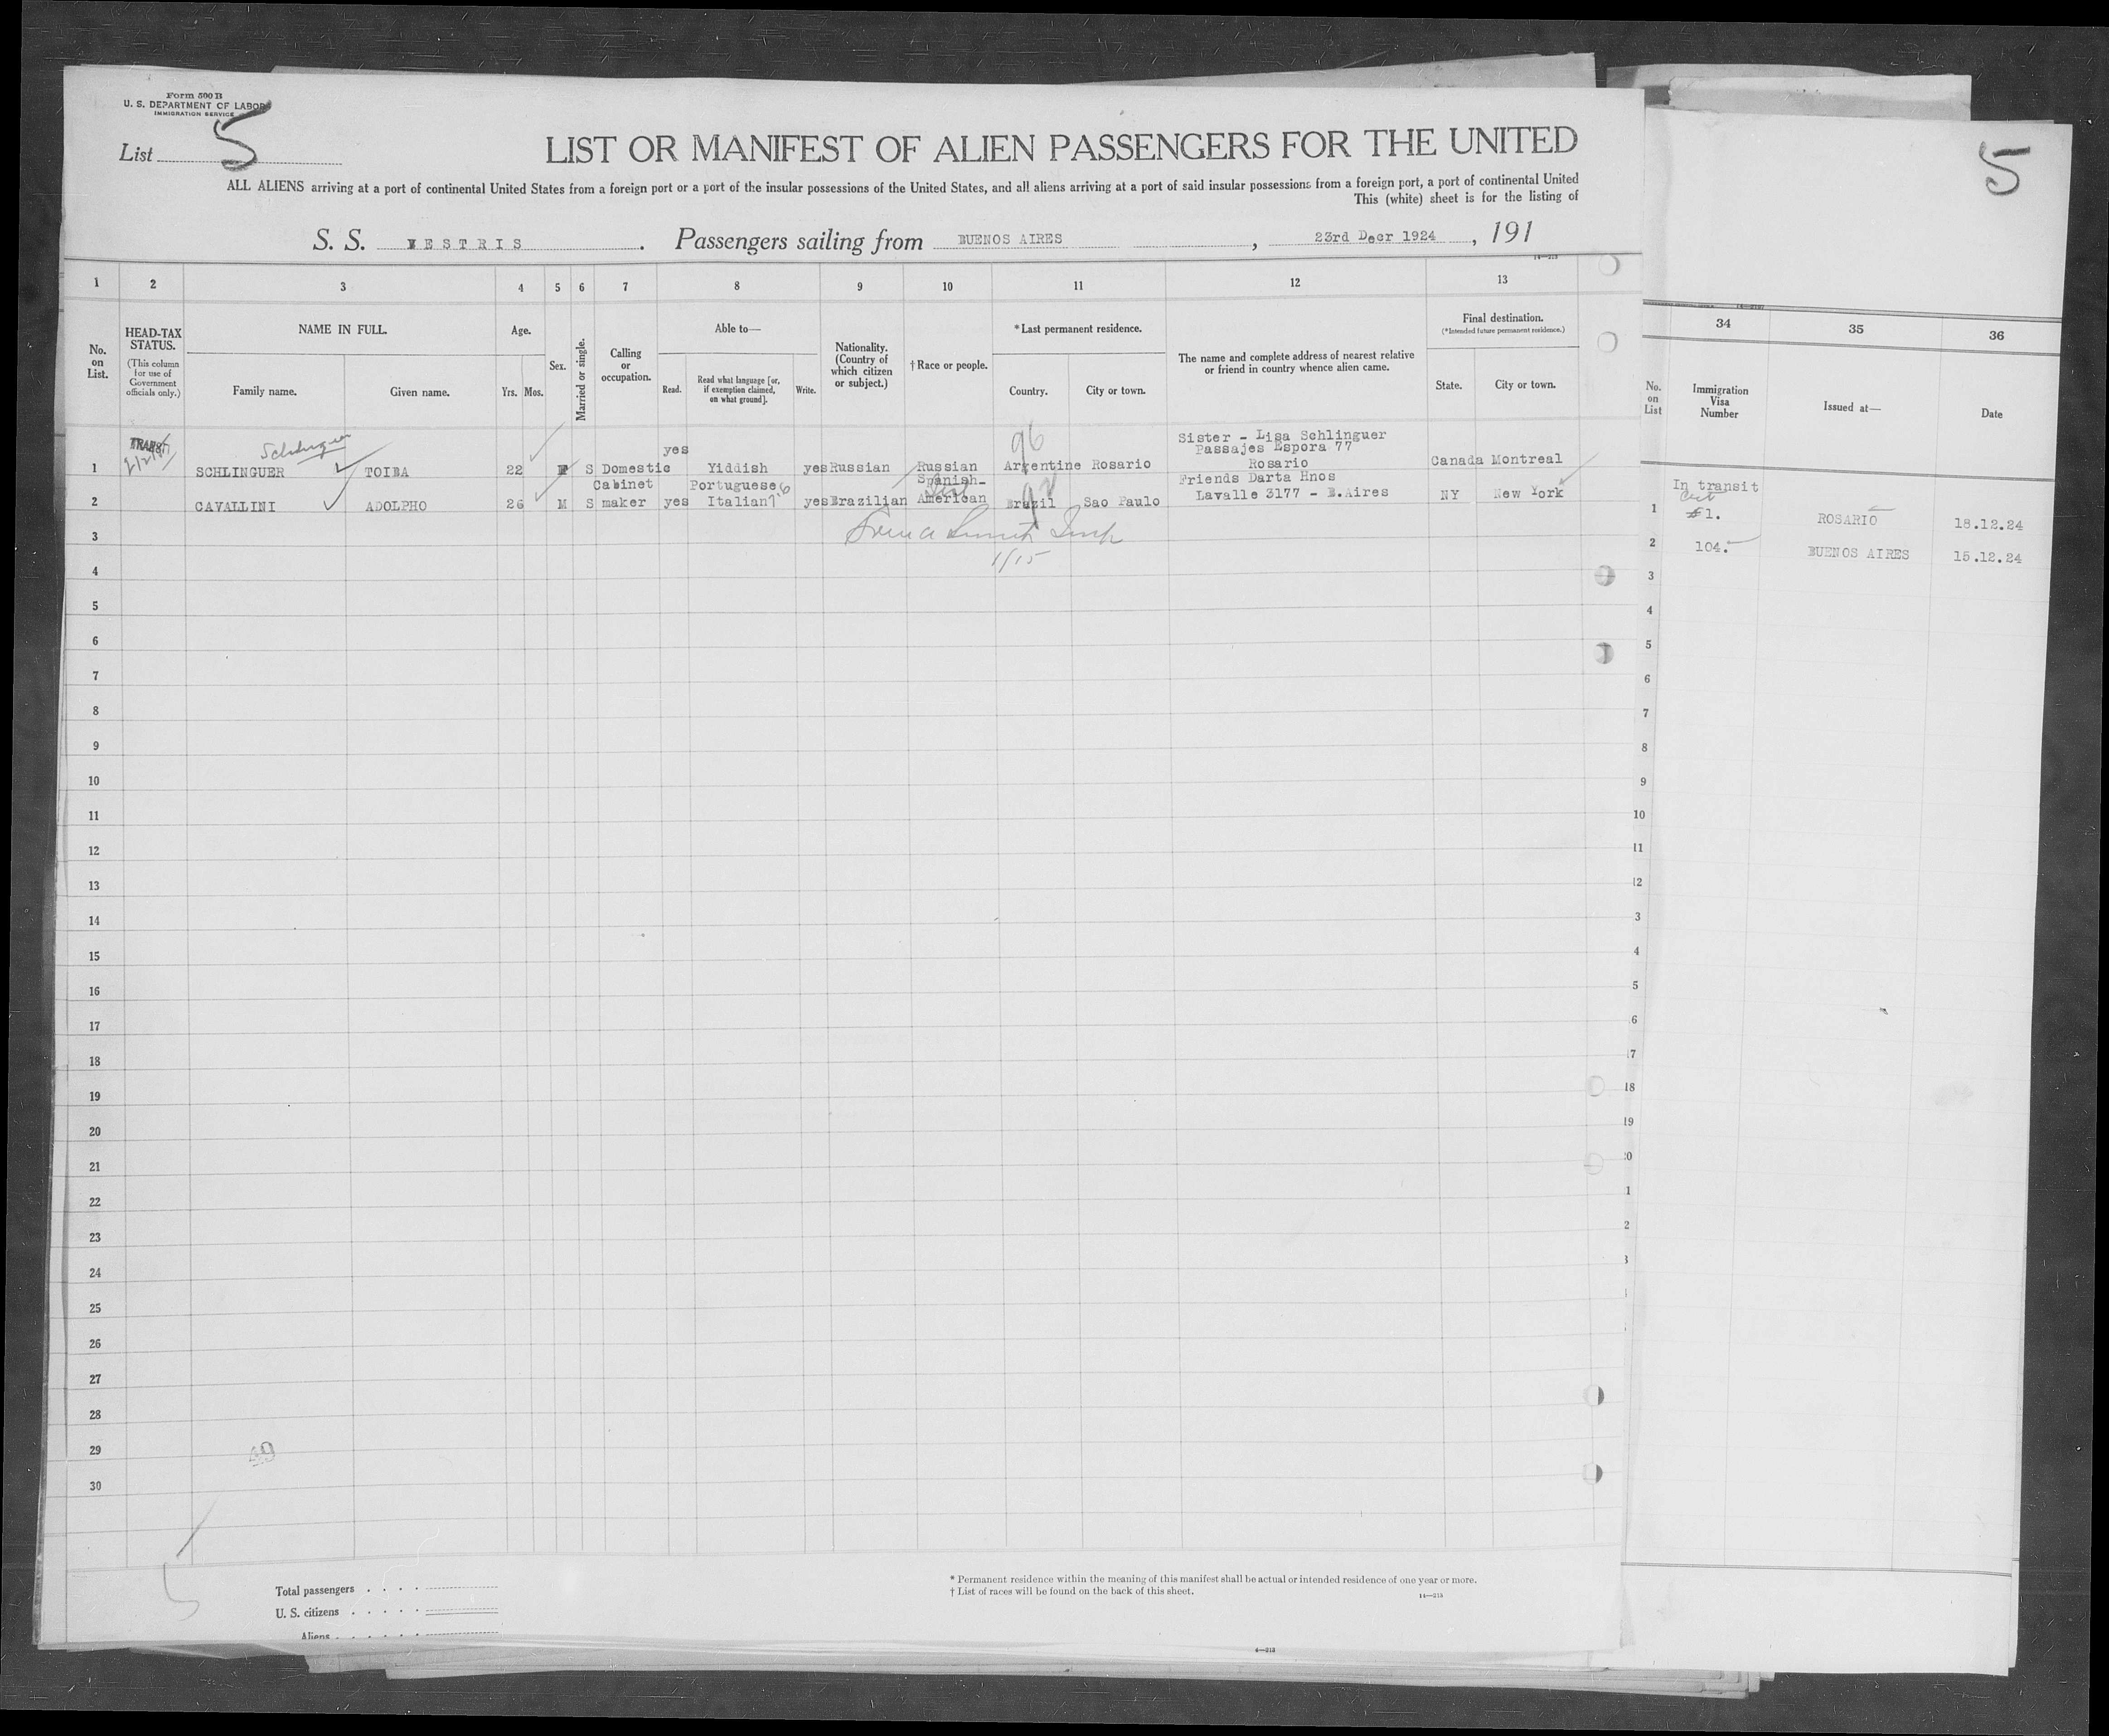 Form 500 B
U. S. DEPARTMENT OF LABOR
IMMIGRATION SERVICE
List 5
LIST OR MANIFEST OF ALIEN PASSENGERS FOR THE UNITED
ALL ALIENS arriving at a port of continental United States from a foreign port or a port of the insular possessions of the United States, and all aliens arriving at a port of said insular possessions from a foreign port, a port of continental United
This (white) sheet is for the listing of
S. S. VESTRIS . Passengers sailing from BUENOS AIRES , 23rd Decr 1924 , 191
1 2 3 4 5 6 7 8 9 10 11 12 13
No. on List.
HEAD-TAX STATUS.
(This column for use of Government officials only.)
NAME IN FULL.
Family name. Given name.
Age.
Yrs. Mos.
Sex.
Married or single.
Calling or occupation.
Able to—
Read. Read what language [or, if exemption claimed, on what ground]. Write.
Nationality. (Country of which citizen or subject.)
† Race or people.
* Last permanent residence.
Country. City or town.
The name and complete address of nearest relative or friend in country whence alien came.
Final destination.
(*Intended future permanent residence.)
State. City or town.
TRANSIT
96
Sister - Lisa Schlinguer
Passajes Espora 77
1 SCHLINGUER TOIBA 22 F S Domestic yes Yiddish yes Russian Russian Argentine Rosario Rosario Canada Montreal
Cabinet Portuguese Spanish- Friends Darta Hnos
2 CAVALLINI ADOLPHO 26 M S maker yes Italian yes Brazilian American Brazil Sao Paulo Lavalle 3177 - B.Aires NY New York
3
1/15
4
5
6
7
8
9
10
11
12
13
14
15
16
17
18
19
20
21
22
23
24
25
26
27
28
29
49
30
Total passengers
U. S. citizens
Aliens
* Permanent residence within the meaning of this manifest shall be actual or intended residence of one year or more.
† List of races will be found on the back of this sheet.
14—213
5
34 35 36
No. on List
Immigration Visa Number
Issued at—
Date
In transit
1 #1. ROSARIO 18.12.24
2 104. BUENOS AIRES 15.12.24
3
4
5
6
7
8
9
10
11
12
3
4
5
6
17
18
19
20
1
2
3